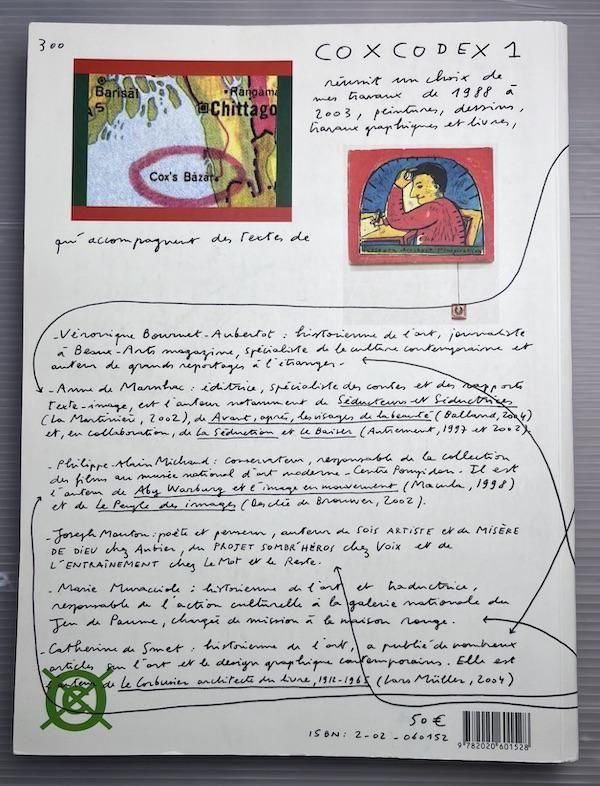 300
COXCODEX 1
réunit un choix de
mes travaux de 1988 à
2003, peintures, dessins,
travaux graphiques et livres,
Barisal
Rangama
Chittago
Cox's Bazar
qui accompagnent des textes de
- Véronique Bouruet-Aubertot : historienne de l'art, journaliste
à Beaux-Arts magazine, spécialiste de la culture contemporaine et
auteur de grands reportages à l'étranger.
- Anne de Marnhac : éditrice, spécialiste des contes et des rapports
texte-image, est l'auteur notamment de Séducteurs et Séductrices
(La Martinière, 2002), de Avant, après, les visages de la beauté (Balland, 2004)
et, en collaboration, de La Séduction et Le Baiser (Autrement, 1997 et 2002).
- Philippe-Alain Michaud : conservateur, responsable de la collection
des films au musée national d'art moderne - Centre Pompidou. Il est
l'auteur de Aby Warburg et l'image en mouvement (Macula, 1998)
et de Le Peuple des images (Desclée de Brouwer, 2002).
- Joseph Mouton : poète et penseur, auteur de SOIS ARTISTE et de MISÈRE
DE DIEU chez Aubier, du PROJET SOMBR'HÉROS chez Voix et de
L'ENTRAÎNEMENT chez Le Mot et le Reste.
- Marie Muracciole : historienne de l'art et traductrice,
responsable de l'action culturelle à la galerie nationale du
Jeu de Paume, chargée de mission à la maison rouge.
- Catherine de Smet : historienne de l'art, a publié de nombreux
articles sur l'art et le design graphique contemporains. Elle est
l'auteur de Le Corbusier architecte du livre, 1912-1965 (Lars Müller, 2004)
50 €
ISBN : 2-02-060152
9 782020 601528